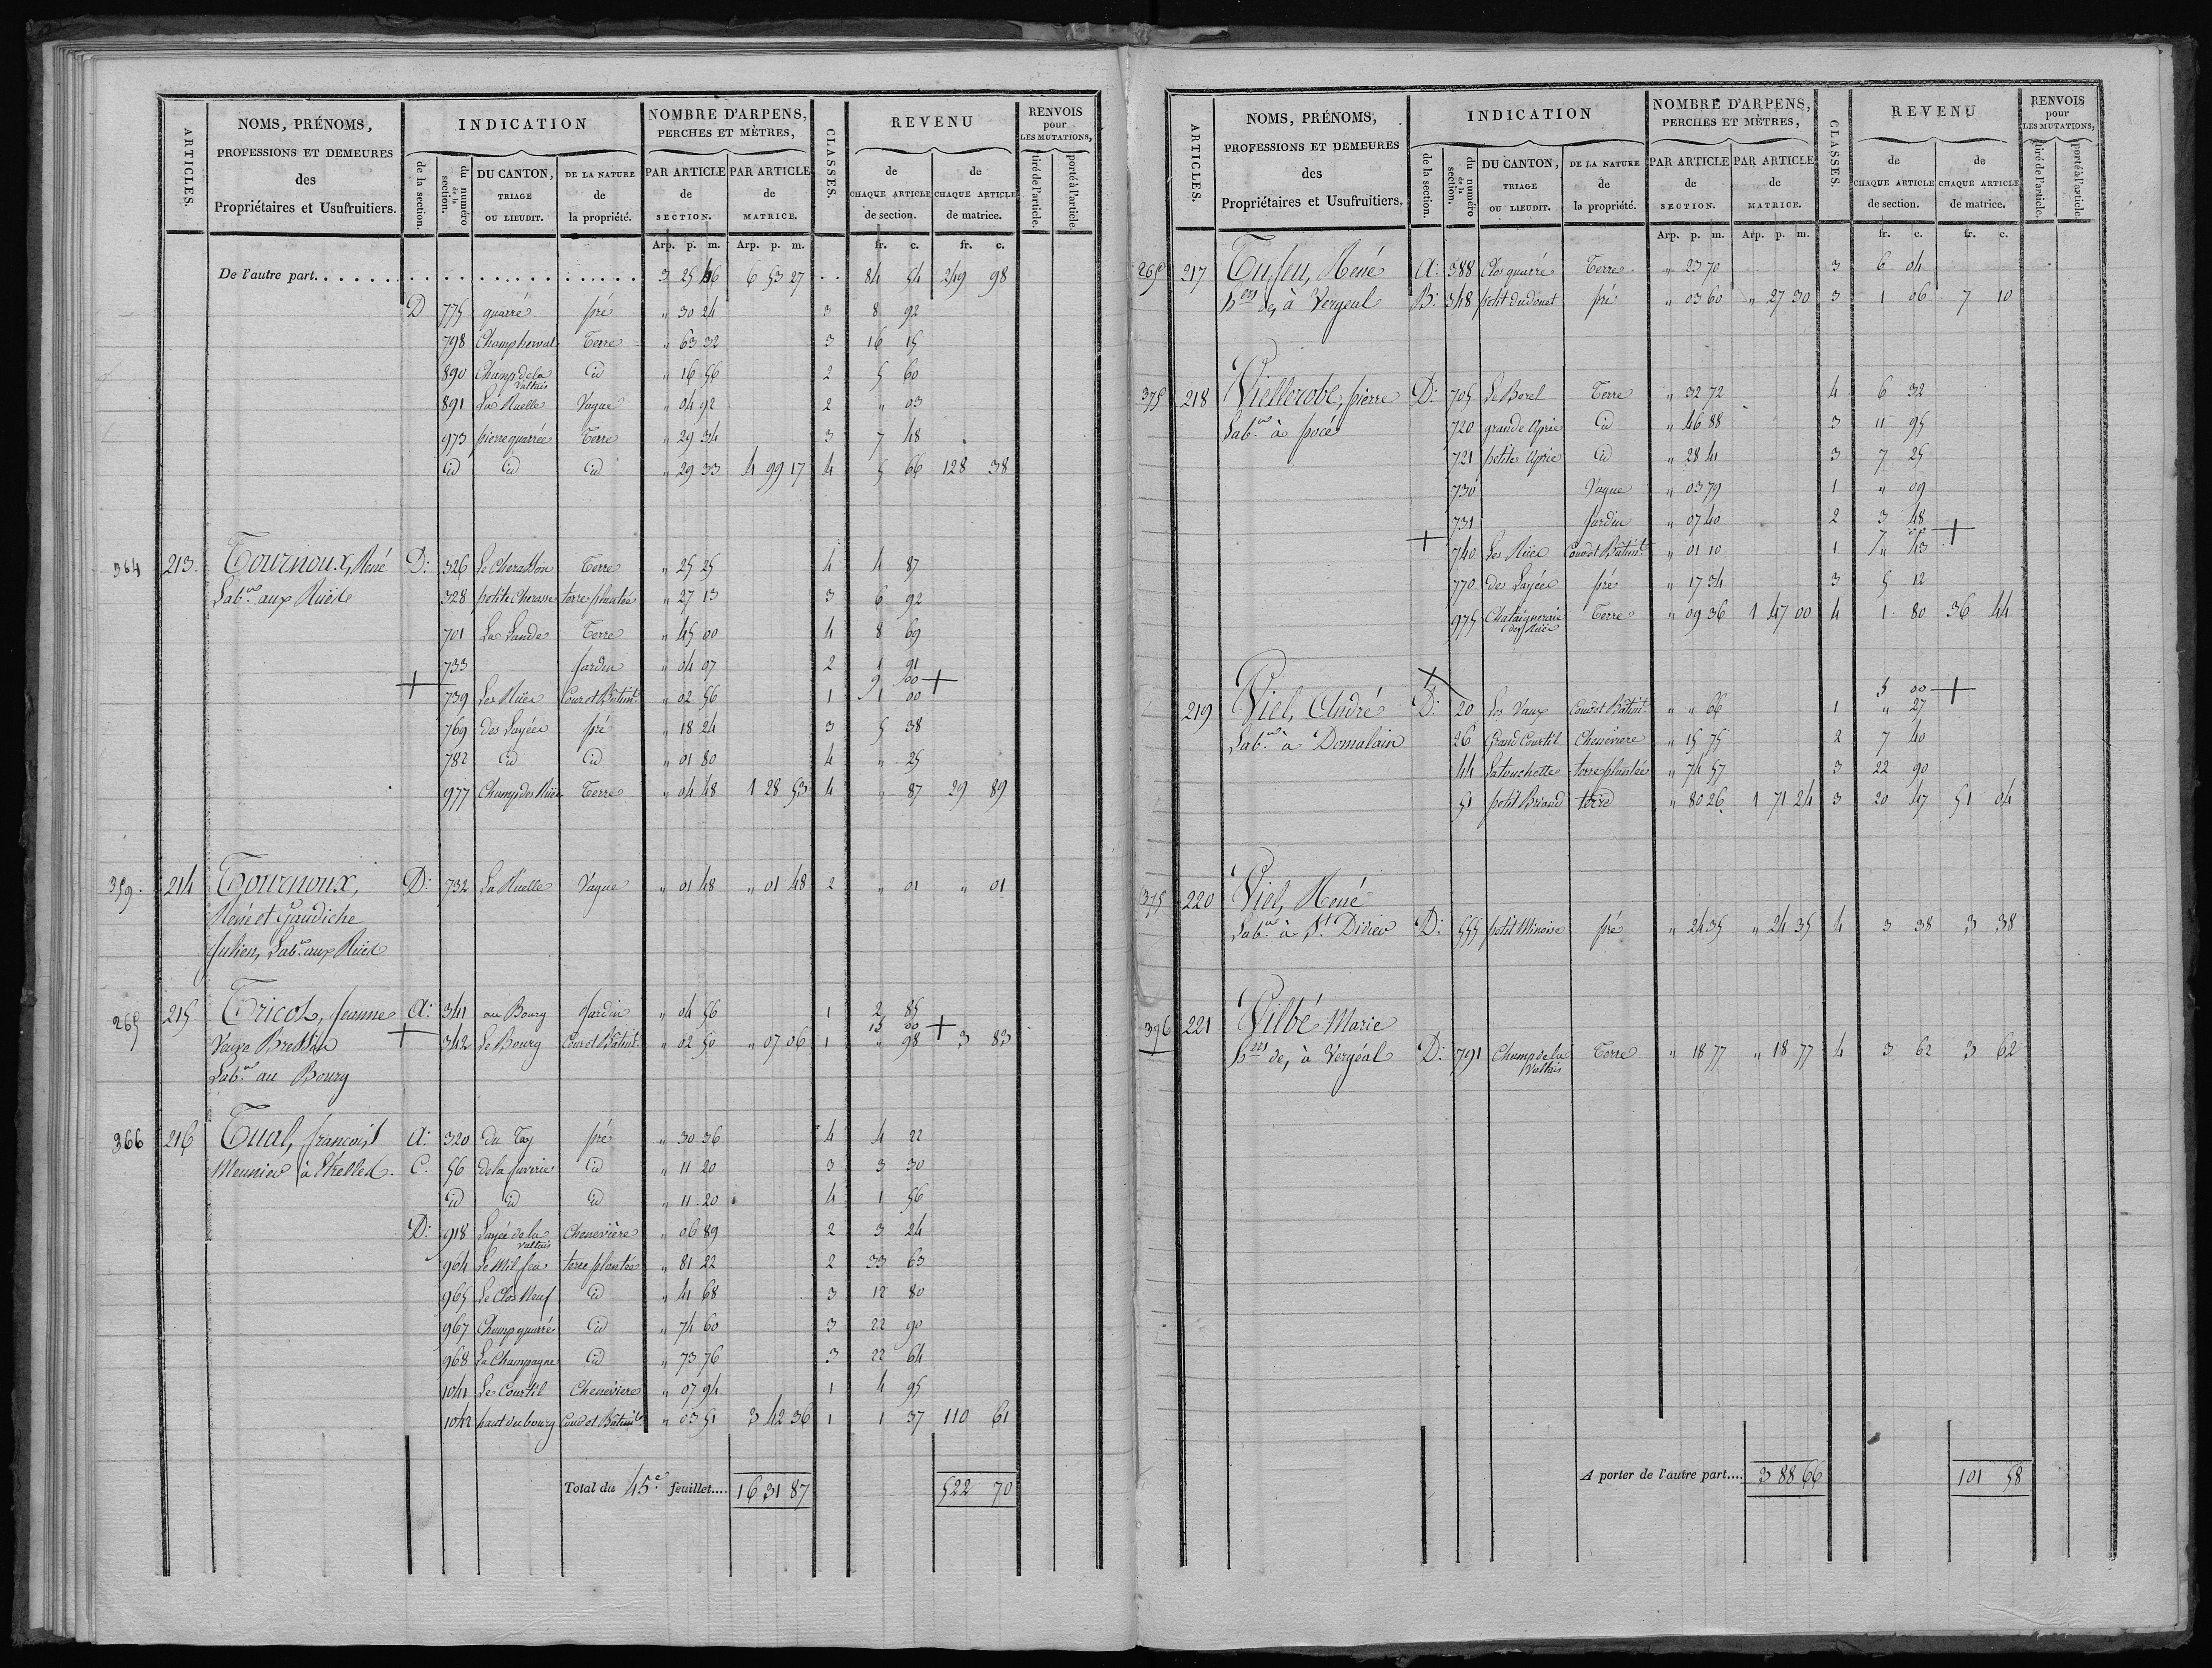 ARTICLES. NOMS, PRÉNOMS, PROFESSIONS ET DEMEURES des Propriétaires et Usufruitiers. INDICATION de la section. du numéro de la section. DU CANTON, TRIAGE OU LIEUDIT. DE LA NATURE de la propriété. NOMBRE D'ARPENS, PERCHES ET MÈTRES, PAR ARTICLE de SECTION. PAR ARTICLE de MATRICE. CLASSES. REVENU de CHAQUE ARTICLE de section. de CHAQUE ARTICLE de matrice. RENVOIS pour LES MUTATIONS, tiré de l'article. porté à l'article
Arp. p. m. Arp. p. m. fr. c. fr. c.
De l'autre part. 3 25 46 6 53 27 84 54 249 98
D 775 quarré pré " 30 24 3 8 92
798 Champ herval Terre " 63 32 3 16 15
890 Champ de la Vallais id " 16 56 2 5 60
891 La Ruelle Vague " 04 92 2 " 03
973 pierre quarrée Terre " 29 34 3 7 48
id id id " 29 33 4 99 17 4 5 66 128 38
364 213. Tournoux, René D: 326 Terre " 25 25 4 4 87
Labr. aux Rüés 328 petite terre plantée " 27 13 3 6 92
701 La Lande Terre " 45 00 4 8 69
733 Jardin " 04 97 2 1 91
9 60 +
+ 739 Les Rüés Cour et Bâtimt. " 02 56 1 1 00
769 des Layées pré " 18 24 3 5 38
782 id id " 01 80 4 " 25
977 Champ des Rüés Terre " 04 48 1 28 53 4 " 87 29 89
359. 214 Tournoux, D: 732 La Rüelle Vague " 01 48 " 01 48 2 " 01 " 01
René et Gaudiche
Julien, Labr. aux Rüés
265 215 Tricot, Jeanne A: 341 au Bourg Jardin " 04 56 1 2 85
15 00 +
Veuve + 342 Le Bourg Cour et Bâtimt. " 02 50 " 07 06 1 " 98 3 83
Labr. au Bourg
366 216 Tual, françois A: 320 du Tay pré " 30 36 4 4 22
Meunier à Etrelles. C. 56 de la id " 11 20 3 3 30
id id id " 11 20 4 1 56
D: 918 Layée de la Vallais Chenevière " 06 89 2 3 24
964 terre plantée " 81 22 2 33 63
965 Le Clos Neuf id " 41 68 3 12 80
967 Champ quarré id " 74 60 3 22 90
968 La Champagne id " 73 76 3 22 64
1041 Le Courtil Cheneviere " 07 94 1 4 95
1042 haut du bourg Cour et Bâtimt. " 03 51 3 42 36 1 1 37 110 61
Total du 45e. feuillet.... 16 31 87 522 70
ARTICLES. NOMS, PRÉNOMS, PROFESSIONS ET DEMEURES des Propriétaires et Usufruitiers. INDICATION de la section. du numéro de la section. DU CANTON, TRIAGE OU LIEUDIT. DE LA NATURE de la propriété. NOMBRE D'ARPENS, PERCHES ET MÈTRES, PAR ARTICLE de SECTION. PAR ARTICLE de MATRICE. CLASSES. REVENU de CHAQUE ARTICLE de section. de CHAQUE ARTICLE de matrice. RENVOIS pour LES MUTATIONS, tiré de l'article. porté à l'article
Arp. p. m. Arp. p. m. fr. c. fr. c.
265 217 Tufeu, René A: 388 Clos quarré Terre " 23 70 3 6 04
hers de, à Vergeal B: 348 petit pré " 03 60 " 27 30 3 1 06 7 10
375 218 Viellerobe, pierre D: 705 Le Borel Terre " 32 72 4 6 32
Labr. à pocé 720 grande id " 46 88 3 11 95
721 petite id " 28 41 3 7 25
730 Vague " 03 79 1 " 09
731 Jardin " 07 40 2 3 48
+ 740 Les Rüés Cour et Bâtimt. " 01 10 1 " 43 +
770 des Layées pré " 17 34 3 5 12
975 Chataigneraie des Rüés Terre " 09 36 1 47 00 4 1 80 36 44
5 00 +
219 Viel, André + D: 20 Les Vaux Cour et Bâtimt. " " 66 1 " 27
Labr. à Domalain 26 Grand Courtil Chenevière " 15 75 2 7 40
44 La touchette terre plantée " 74 57 3 22 90
51 petit Briand terre " 80 26 1 71 24 3 20 47 51 04
375 220 Viel, René
Labr. à St. Didier D: 555 petit Minoise pré " 24 35 " 24 35 4 3 38 3 38
396 221 Vilbé Marie
hers de, à Vergéal D: 791 Champ de la Vallais Terre " 18 77 " 18 77 4 3 62 3 62
A porter de l'autre part.... 3 88 66 101 58